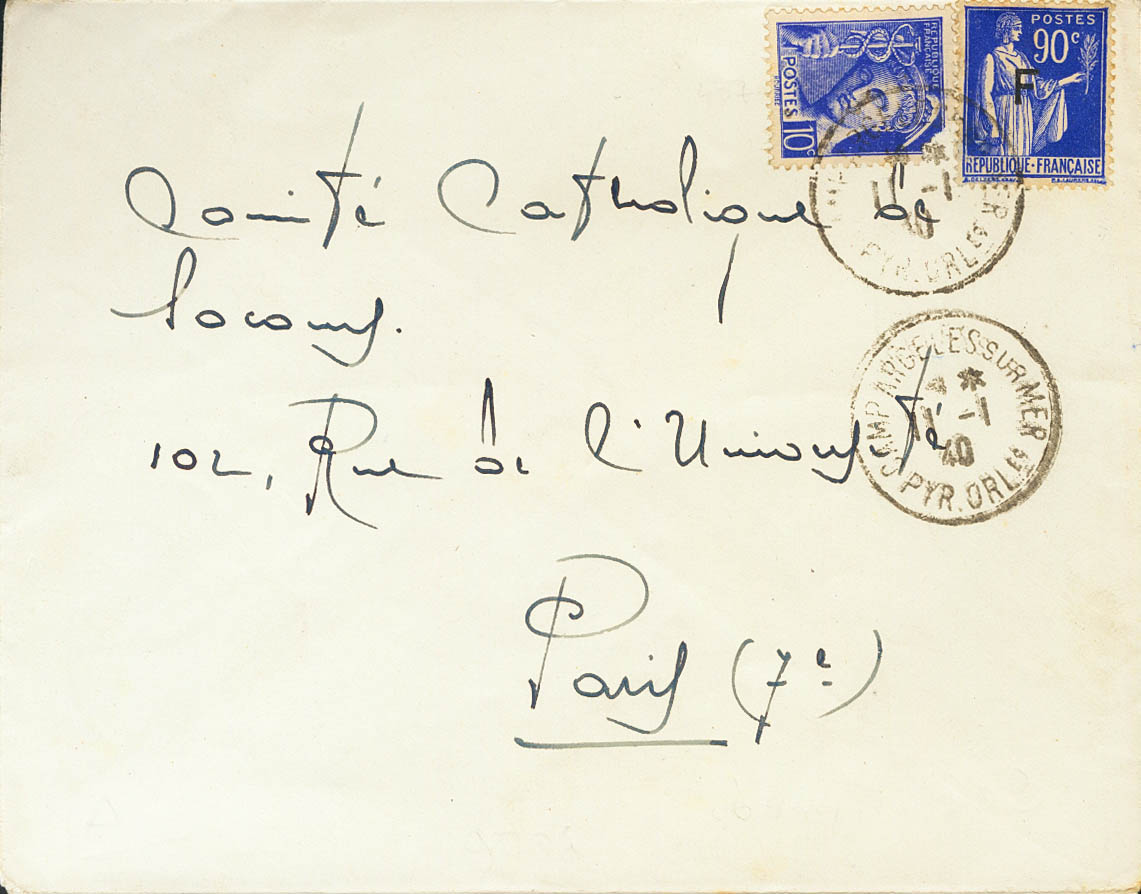 RÉPUBLIQUE
FRANÇAISE
POSTES
10c
POSTES
90c
F
RÉPUBLIQUE-FRANÇAISE
11 -1
40
PYR. ORLES
Comité Catholique de
Secours.
102, Rue de l'Université
Paris (7e)
CAMP ARGELES SUR MER
* *
11 -1
40
PYR. ORLES